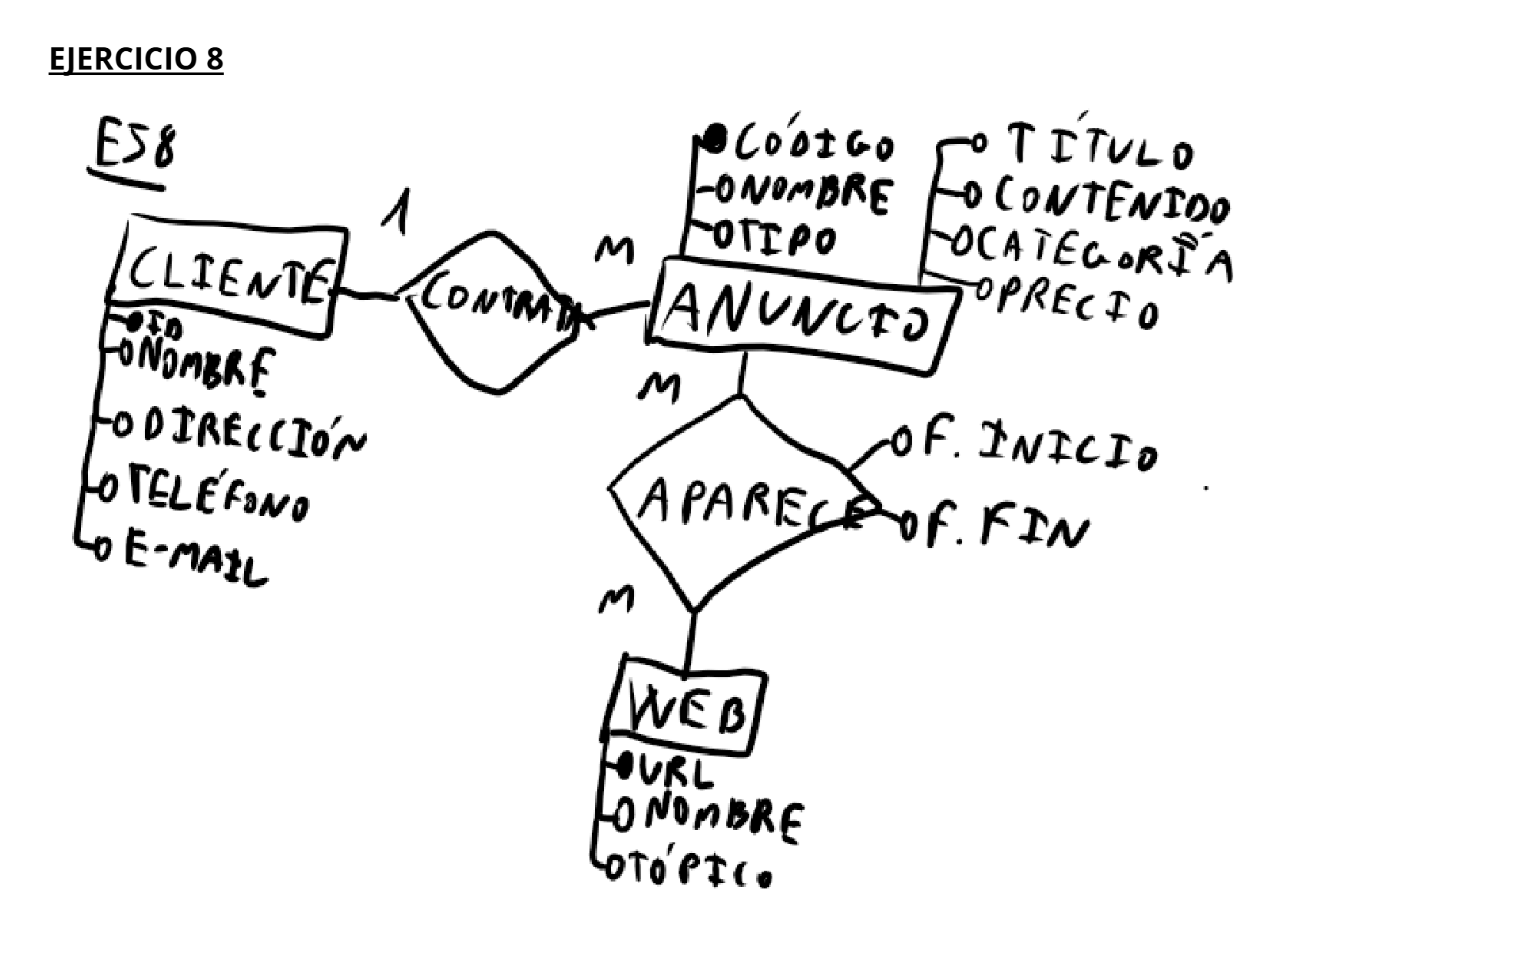 EJERCICIO 8
EJ8
CLIENTE
ID
NOMBRE
DIRECCIÓN
TELÉFONO
E-MAIL
1
CONTRATA
M
CÓDIGO
NOMBRE
TIPO
TÍTULO
CONTENIDO
CATEGORÍA
PRECIO
ANUNCIO
M
APARECE
F. INICIO
F. FIN
M
WEB
URL
NOMBRE
TÓPICO